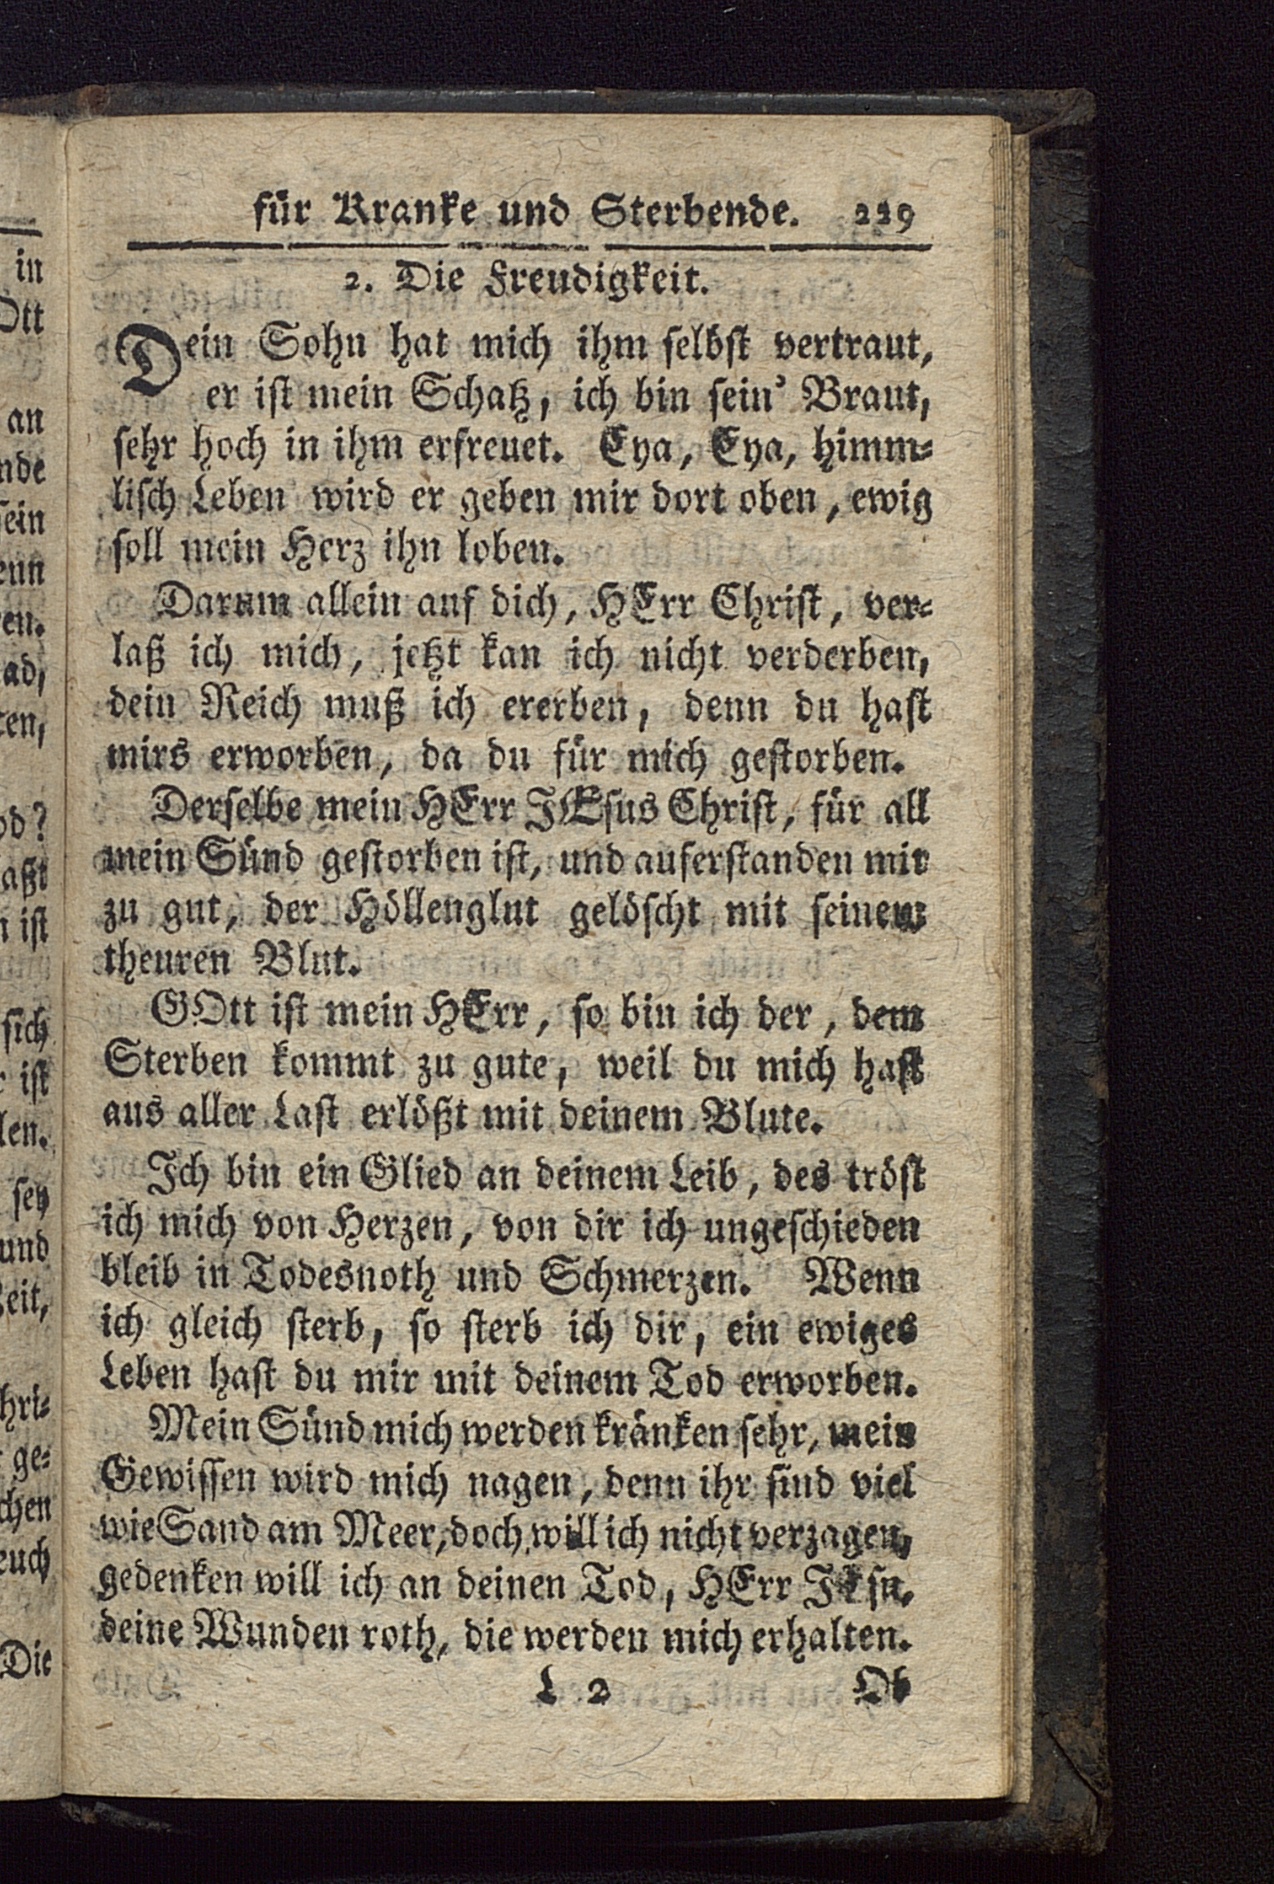 für Kranke und Sterbende. 229
2. Die Freudigkeit.
Dein Sohn hat mich ihm selbst vertraut,
er ist mein Schatz, ich bin sein' Braut,
sehr hoch in ihm erfreuet. Eya, Eya, himm-
lisch Leben wird er geben mir dort oben, ewig
soll mein Herz ihn loben.
Darum allein auf dich, HErr Christ, ver-
laß ich mich, jetzt kan ich nicht verderben,
dein Reich muß ich ererben, denn du hast
mirs erworben, da du für mich gestorben.
Derselbe mein HErr JEsus Christ, für all
mein Sünd gestorben ist, und auferstanden mir
zu gut, der Höllenglut gelöscht mit seinem
theuren Blut.
GOtt ist mein HErr, so bin ich der, dem
Sterben kommt zu gute, weil du mich hast
aus aller Last erlößt mit deinem Blute.
Ich bin ein Glied an deinem Leib, des tröst
ich mich von Herzen, von dir ich ungeschieden
bleib in Todesnoth und Schmerzen. Wenn
ich gleich sterb, so sterb ich dir, ein ewiges
Leben hast du mir mit deinem Tod erworben.
Mein Sünd mich werden kränken sehr, mein
Gewissen wird mich nagen, denn ihr sind viel
wie Sand am Meer, doch will ich nicht verzagen,
gedenken will ich an deinen Tod, HErr JEsu,
deine Wunden roth, die werden mich erhalten.
L 2 Ob